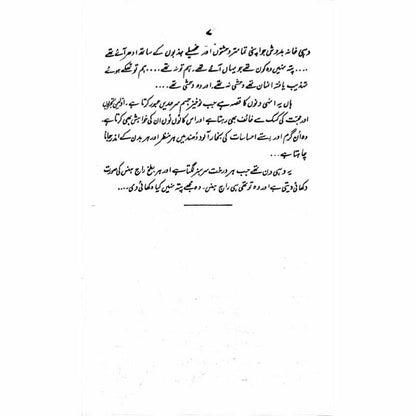 ۷
وہی خانہ بدوش جو اپنی تمام تر وحشتوں اور غصیلے جذبوں کے ساتھ ادھر آئے تھے
.... پتہ نہیں وہ کون تھے جو یہاں آئے تھے۔ ہم تو نہ تھے.... ہم تو تھکے ہوئے
تہذیب یافتہ انسان تھے وحشی نہ تھے۔ اور وہ وحشی تھے....
ہاں یہ انہی دنوں کا قصہ ہے جب نوخیز جسم سرحدیں عبور کرتا ہے۔ اولین
اور محبت کی کسک سے خائف بھی رہتا ہے اور اس کا لُوں لُوں ان کی خواہش بھی کرتا ہے۔
وہ اُن گرم اور رستے احساسات کی بخار آلود دُھند میں ہر منظر اور ہر بدن کے اندر جانا
چاہتا ہے...
یہ وہی دن تھے جب ہر درخت سرسبز لگتا ہے اور ہر بطخ راج ہنس کی صورت
دکھائی دیتی ہے اور وہ تو تھی ہی راج ہنس۔ وہ مجھے پتہ نہیں کیا دکھائی دی....